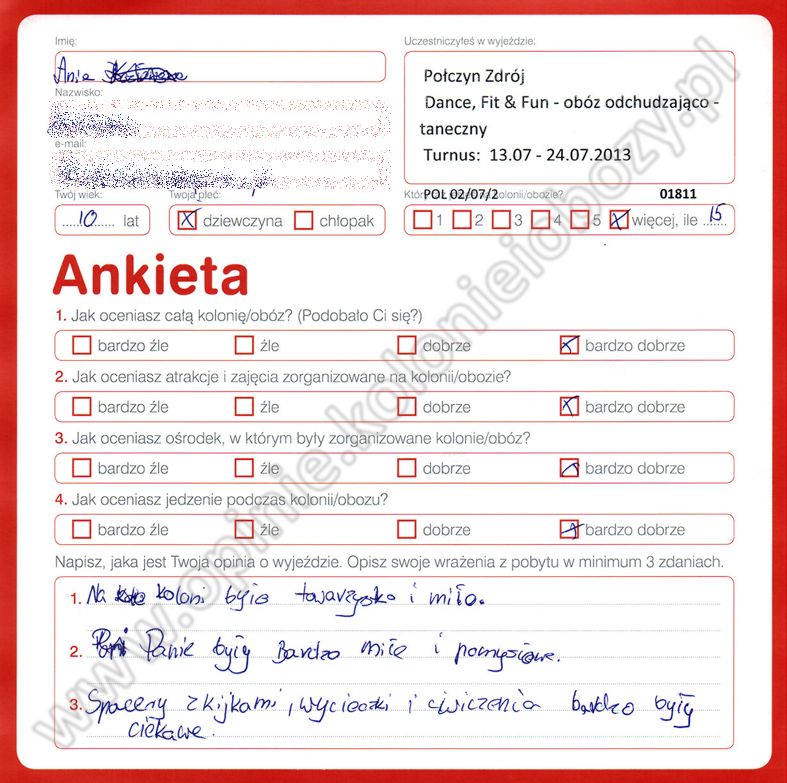 Imię:
Uczestniczyłeś w wyjeździe:
Ania
Połczyn Zdrój
Dance, Fit & Fun - obóz odchudzająco -
taneczny
Turnus: 13.07 - 24.07.2013
Nazwisko:
e-mail:
Twój wiek:
Twoja płeć:
POŁ 02/07/2 01811
10 lat
X dziewczyna chłopak
1 2 3 4 5 X więcej, ile 15
Ankieta
1. Jak oceniasz całą kolonię/obóz? (Podobało Ci się?)
bardzo źle źle dobrze X bardzo dobrze
2. Jak oceniasz atrakcje i zajęcia zorganizowane na kolonii/obozie?
bardzo źle źle dobrze X bardzo dobrze
3. Jak oceniasz ośrodek, w którym były zorganizowane kolonie/obóz?
bardzo źle źle dobrze bardzo dobrze
4. Jak oceniasz jedzenie podczas kolonii/obozu?
bardzo źle źle dobrze bardzo dobrze
Napisz, jaka jest Twoja opinia o wyjeździe. Opisz swoje wrażenia z pobytu w minimum 3 zdaniach.
1. Na koloni było towarzysko i miło.
2. Panie były Bardzo miłe i pomysłowe.
3. Spacery z kijkami, wycieczki i ćwiczenia bardzo były
ciekawe.
www.opinie.kolonieiobozy.pl